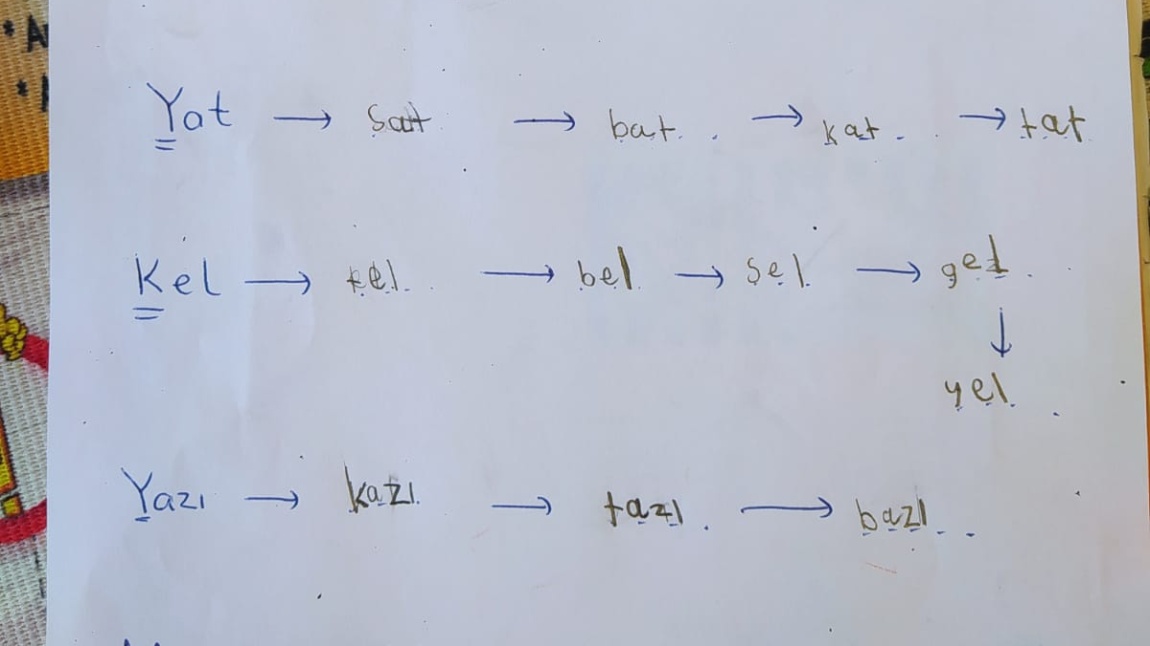 Yat → sat → bat → kat → tat
Kel → tel → bel → sel → gel
↓
yel
Yazı → kazı → tazı → bazı